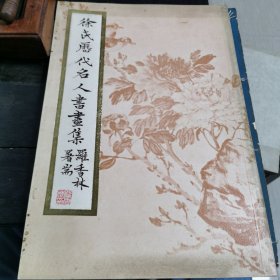 徐氏歷代名人書畫集
羅香林
署耑